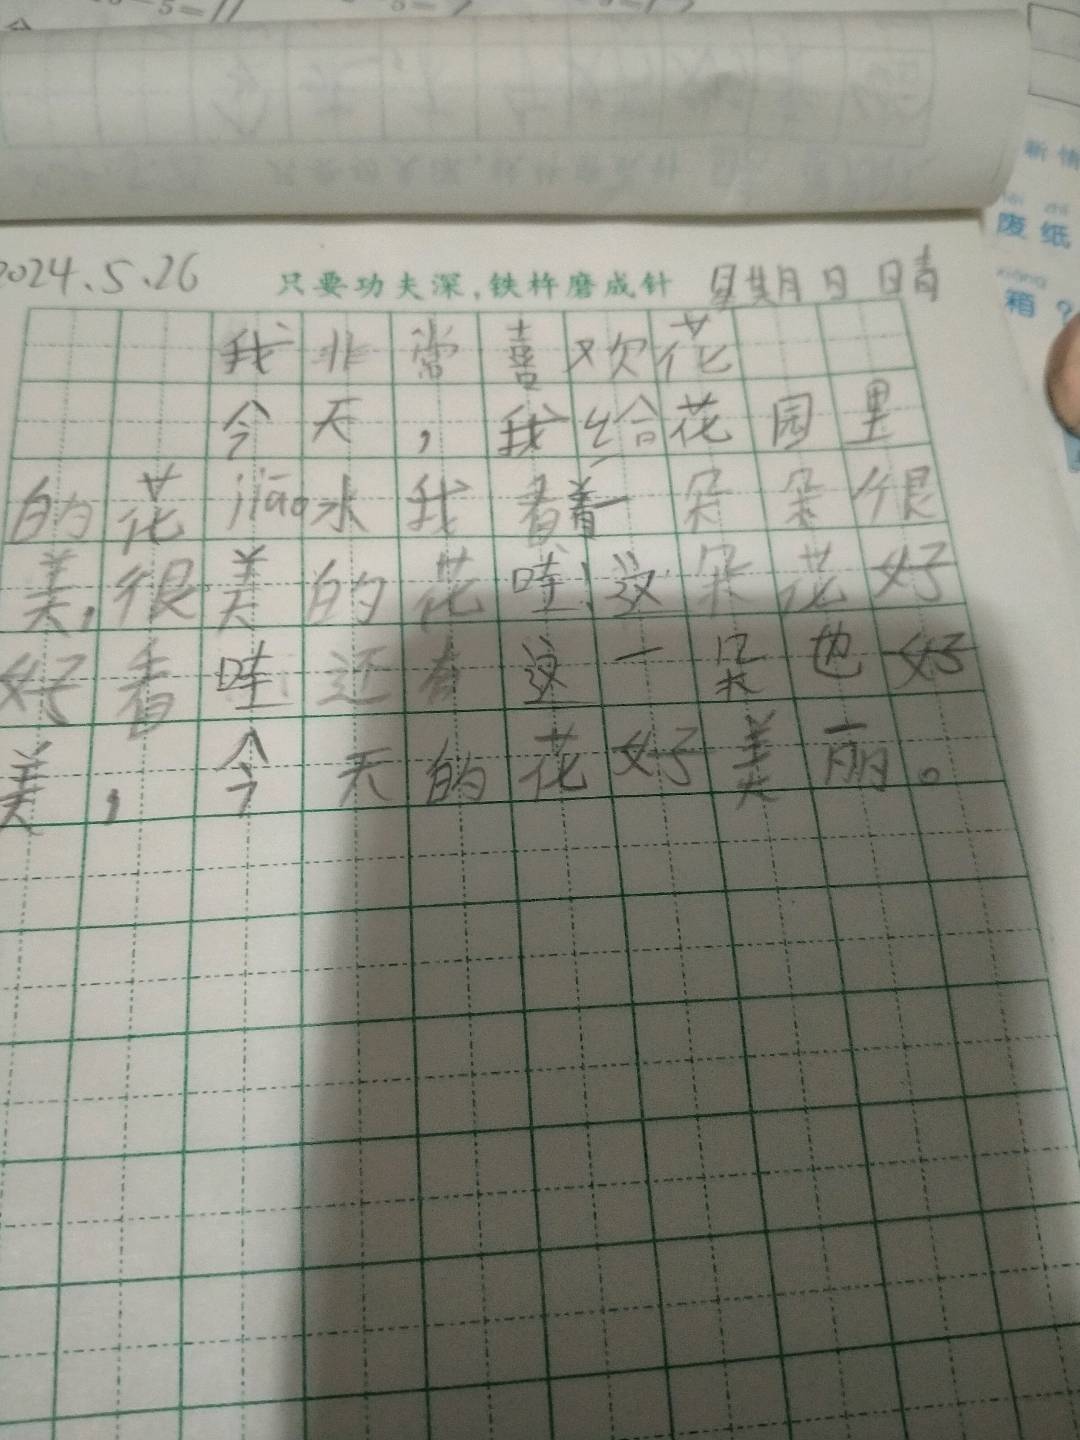 2024.5.26 只要功夫深,铁杵磨成针 星期日 晴
我非常喜欢花
今天,我给花园里
的花jiāo水我看着一朵朵很
美,很美的花哇!这朵花好
好看哇!还有这一朵也好
美,今天的花好美丽。
新情
废纸
xiāng
箱?